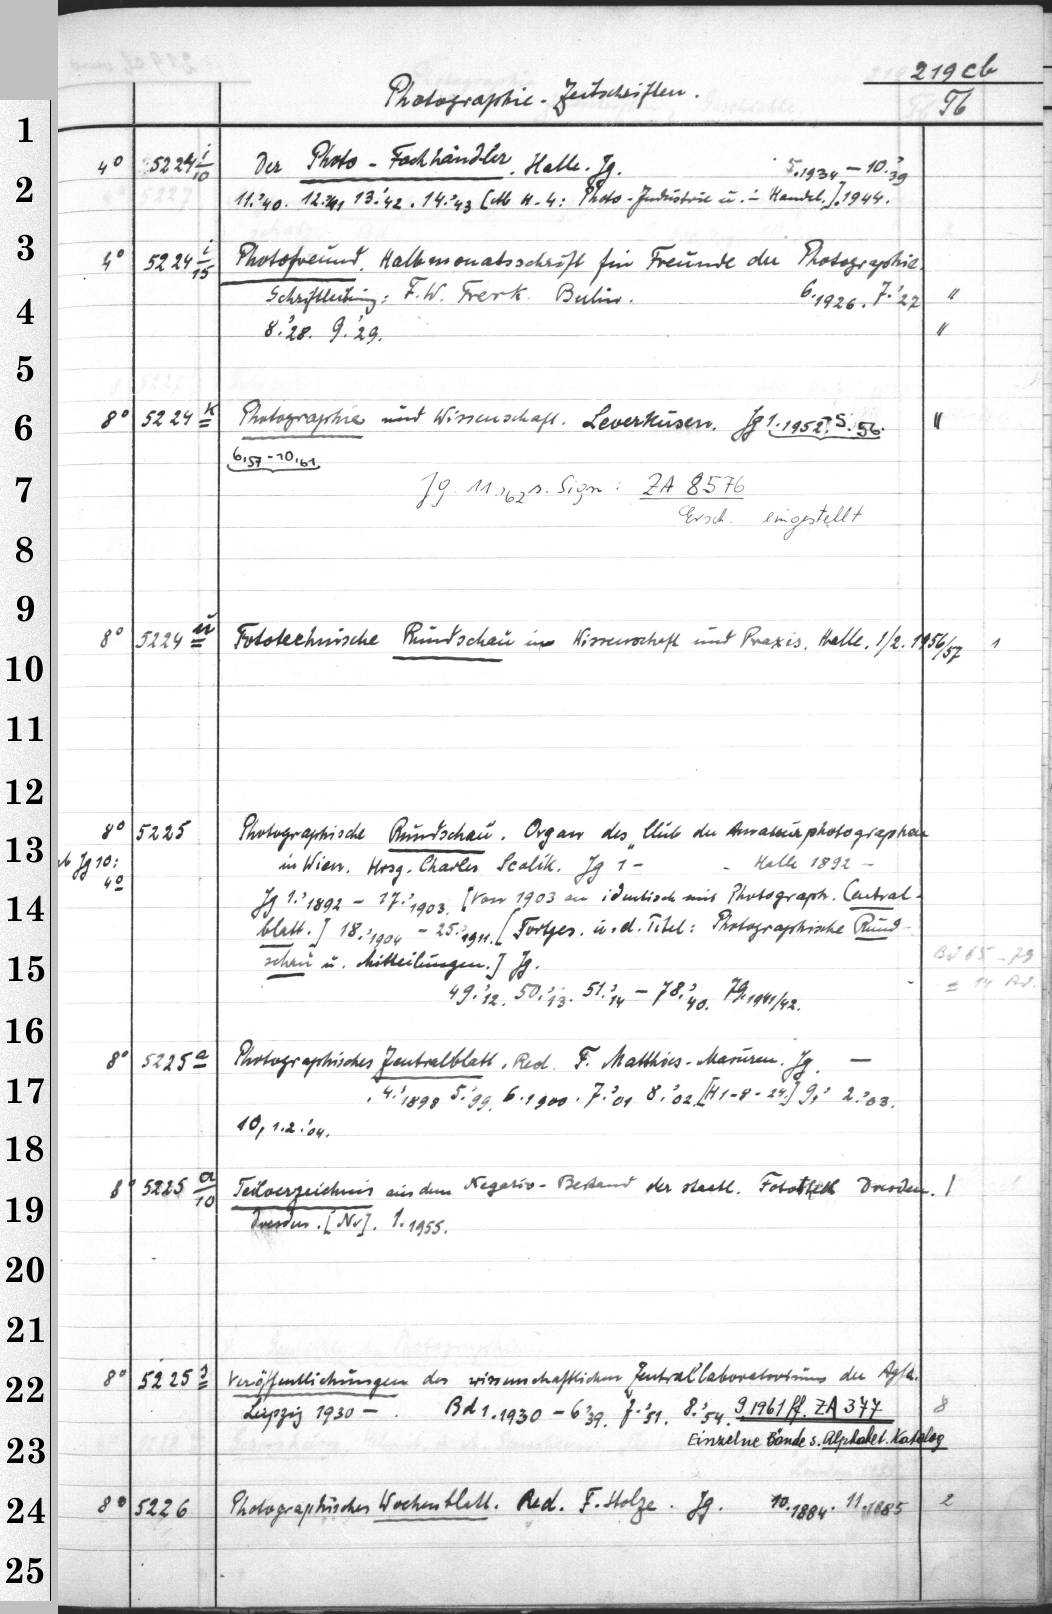 219 cb
Photographie-Zeitschriften. Tb
1
4° 5224 i/10 Der Photo-Fachhändler. Halle. Jg. 5.1934 – 10.'39
2
11.'40. 12.'41 13.'42. 14.'43 [Mb H-4: Photo-Industrie u. - Handel.] 1944.
3
4° 5224 i/15 Photofreund. Halbmonatsschrift für Freunde der Photographie.
Schriftleitung: F.W. Frerk. Berlin. 6.1926. 7.'27 "
4
8.'28. 9.'29. "
5
8° 5224 k Photographie und Wissenschaft. Leverkusen. Jg 1.1952. 5.'56. "
6
6,57-10,61
7
Jg. 11,'62 s. Sign: ZA 8576
Ersch. eingestellt
8
9
8° 5224 u Fototechnische Rundschau in Wissenschaft und Praxis. Halle. 1/2. 1956/57 1
10
11
12
8° 5225 Photographische Rundschau. Organ des "Club der Amateurphotographen
13
ab Jg 10: 4° in Wien. Hrsg. Charles Scolik. Jg 1 – - Halle 1892 –
14
Jg 1.'1892 – 17.'1903. [Von 1903 an identisch mit Photograph. Central-
blatt.] 18.'1904 – 25.'1911. [Fortges. u. d. Titel: Photographische Rund-
15
schau u. Mitteilungen.] Jg. Bd 65-79
= 14 Bd.
49.'12. 50.'13. 51.'14 – 78.'40. 79.1941/42.
16
8° 5225 a Photographisches Zentralblatt. Red. F. Matthies-Masuren. Jg. —
17
4.'1898 5.'99. 6.1900. 7.'01 8.'02 [H 1-8-24.] 9,' 2.'03.
10, 1.2.'04.
18
8° 5225 a/10 Teilverzeichnis aus dem Negativ-Bestand der staatl. Fotothek Dresden. 1
19
Dresden. [Nv]. 1.1955.
20
21
8° 5225 d Veröffentlichungen des wissenschaftlichen Zentrallaboratoriums der Agfa.
22
Leipzig 1930 – . Bd 1.1930 – 6.'39. 7.'51. 8.'54. 9.1961 ff. ZA 377 8
23
Einzelne Bände s. Alphabet. Katalog
24
8° 5226 Photographisches Wochenblatt. Red. F. Stolze. Jg. 10.1884. 11.1885 2
25